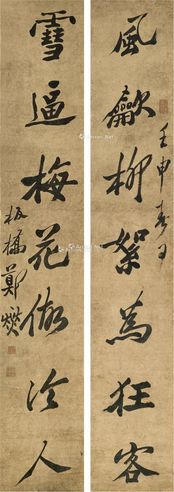 風歙柳絮為狂客
壬申春日
雪逼梅花做冷人
板橋鄭燮